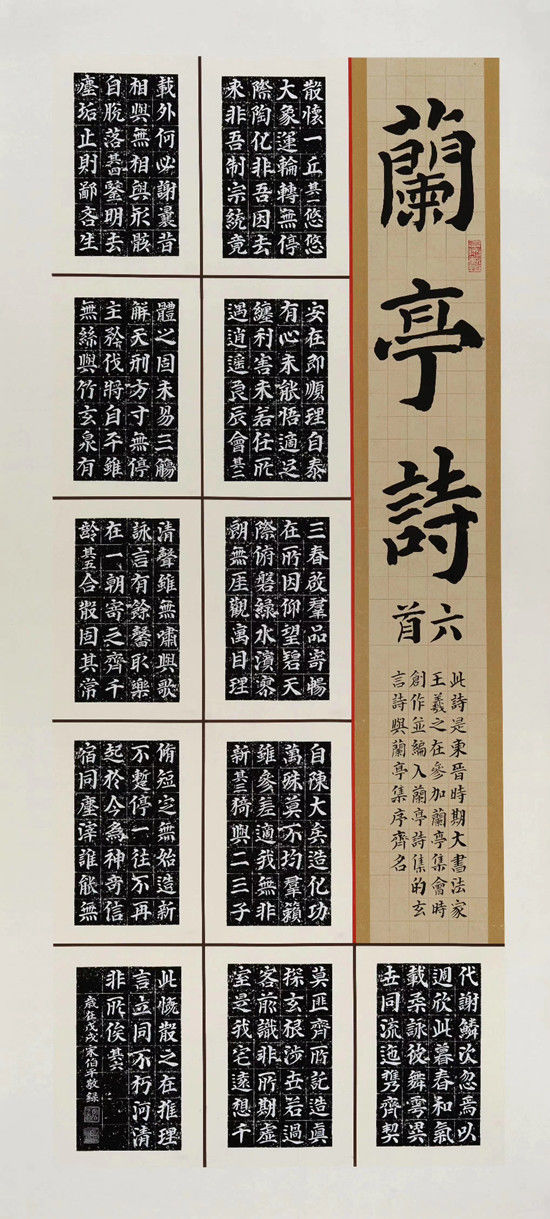 蘭亭詩
六首
此詩是東晉時期大書法家
王羲之在參加蘭亭集會時
創作並編入蘭亭詩集的玄
言詩與蘭亭集序齊名
代謝鱗次忽焉以
週欣此暮春和氣
載柔詠彼舞雩異
世同流迤攜齊契
散懷一丘其一悠悠
大象運輪轉無停
際陶化非吾因去
來非吾制宗統竟
安在即順理自泰
有心未能悟適足
纏利害未若任所
遇逍遥良辰會其二
三春啟羣品寄暢
在所因仰望碧天
際俯磐綠水濱寥
朗無厓觀寓目理
自陳大矣造化功
萬殊莫不均羣籟
雖參差適我無非
新其三猗與二三子
莫匪齊所託造真
探玄根涉世若過
客前識非所期虛
室是我宅遠想千
載外何必謝曩昔
相與無相與形骸
自脫落其四鑒明去
塵垢止則鄙吝生
體之固未易三觴
解天刑方寸無停
主矜伐將自平雖
無絲與竹玄泉有
清聲雖無嘯與歌
詠言有餘馨取樂
在一朝寄之齊千
齡其五合散固其常
脩短定無始造新
不暫停一往不再
起於今為神奇信
宿同塵滓誰能無
此慨散之在推理
言立同不朽河清
非所俟其六
歲在戊戌宋伯平敬錄